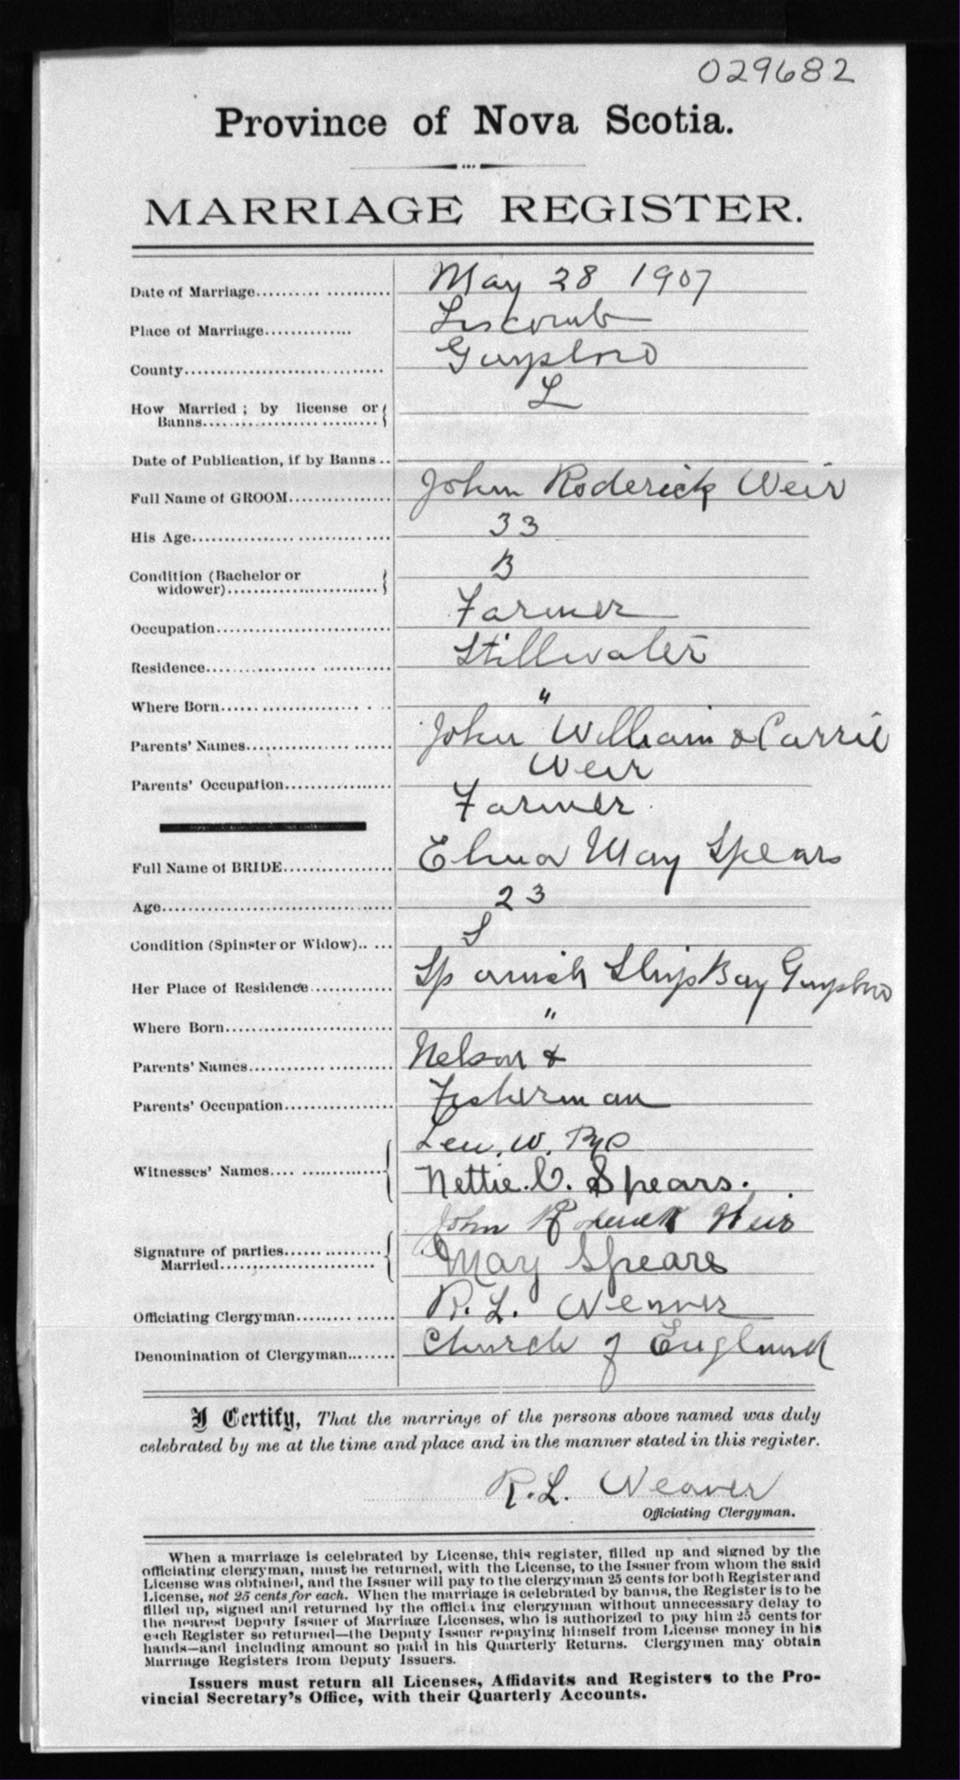 029682
Province of Nova Scotia.
MARRIAGE REGISTER.
Date of Marriage.......... ........... May 28 1907
Place of Marriage............. Liscomb
County................................. Guysboro
How Married ; by license or L
Banns...........................
Date of Publication, if by Banns ..
Full Name of GROOM............... John Roderick Weir
His Age................................. 33
Condition (Bachelor or B
widower)..........................
Occupation............................. Farmer
Residence............. ............ Stillwater
Where Born...................... . . "
Parents' Names.......................... John William & Carrie
Weir
Parents' Occupation.................. Farmer
Full Name of BRIDE................ May Spears
Age...................................... 23
Condition (Spinster or Widow).. ... S
Her Place of Residence............. Spanish Ship Bay Guysboro
Where Born............................. "
Parents' Names.......................... Nelson &
Parents' Occupation.................. Fisherman
W. Pye
Witnesses' Names.... ............... Nettie. C. Spears.
John Roderick Weir
Signature of parties.................
Married......................... May Spears
Officiating Clergyman......... ...... R. L. Weaver
Denomination of Clergyman........ Church of England
I Certify, That the marriage of the persons above named was duly
celebrated by me at the time and place and in the manner stated in this register.
R. L. Weaver
Officiating Clergyman.
When a marriage is celebrated by License, this register, filled up and signed by the
officiating clergyman, must be returned, with the License, to the Issuer from whom the said
License was obtained, and the Issuer will pay to the clergyman 25 cents for both Register and
License, not 25 cents for each. When the marriage is celebrated by banns, the Register is to be
filled up, signed and returned by the officia ing clergyman without unnecessary delay to
the nearest Deputy Issuer of Marriage Licenses, who is authorized to pay him 25 cents for
each Register so returned—the Deputy Issuer repaying himself from License money in his
hands—and including amount so paid in his Quarterly Returns. Clergymen may obtain
Marriage Registers from Deputy Issuers.
Issuers must return all Licenses, Affidavits and Registers to the Pro-
vincial Secretary's Office, with their Quarterly Accounts.